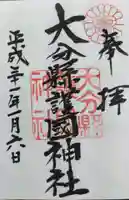 奉拝
大分縣護國神社
平成 一年一月六日
大分縣
神社